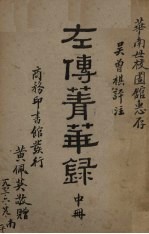 華南女校圖書館惠存
吳曾祺評注
左傳菁華錄
中冊
商務印書館發行
黃佩英敬贈